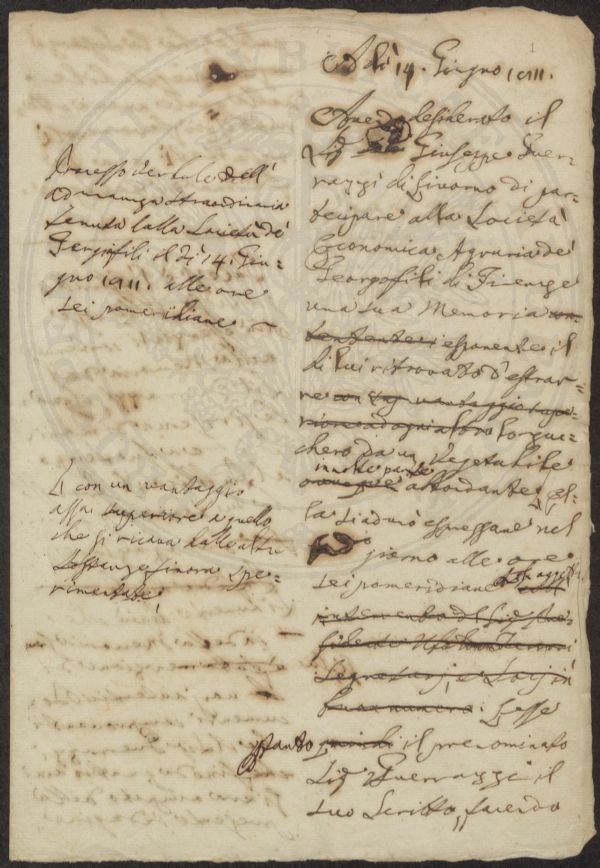 1
A dì 14. Giugno 1811.
Avendo desiderato il
Sig. Giuseppe Guer-
razzi di Livorno di par-
tecipare alla Società
Economica Agraria de'
Georgofili di Firenze
una sua Memoria con-
tenente esponente il
di lui ritrovato d'estrar-
re con vantaggio supe-
riore ad ogni altro lo zuc-
chero da un Vegetabile
in ogni parte
abbondante, el-
la si adunò espressam. nel
giorno alle ore
sei pomeridiane
intervento del
Segretarj, e Socj in
buon numero. Lesse
pertanto quindi il prenominato
Sig. Guerrazzi il
suo Scritto, facendo
Processo verbale dell'
Adunanza straordinaria
tenuta dalla Società de'
Georgofili il dì 14. Giu-
gno 1811. alle ore
sei pomeridiane
con un vantaggio
assai superiore a quello
che si ricava dalle altre
sostanze finora spe-
rimentate